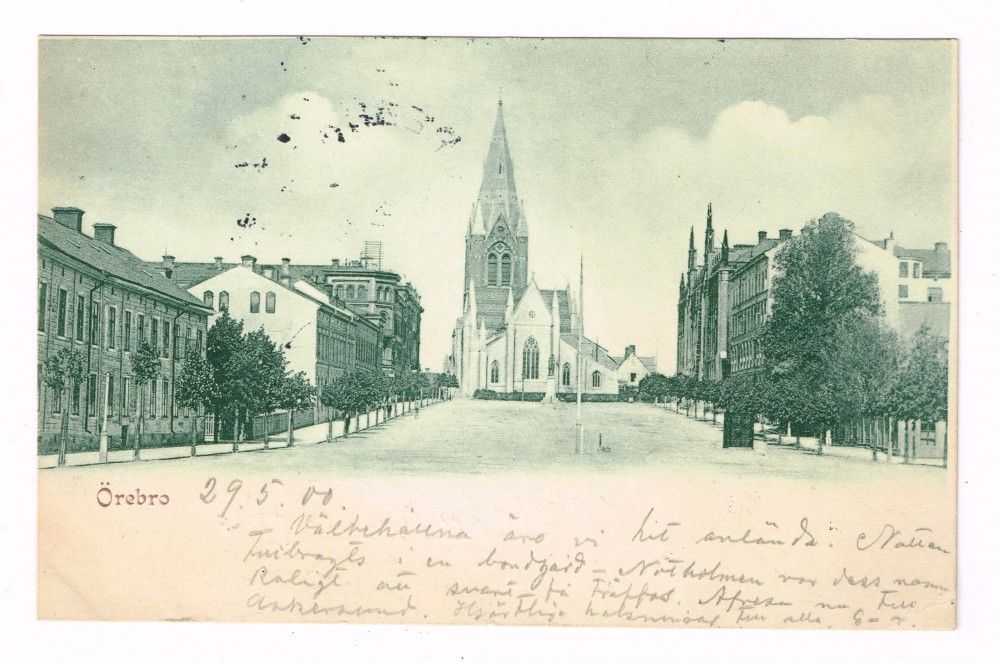 Örebro
29.5.00.
Välbehållna äro vi hit anlända. Natten
tillbragts i en bondgård – Notholmen var dess namn
Roligt att snart få träffas. Afresa nu till
Askersund. Hjärtliga hälsningar till alla.